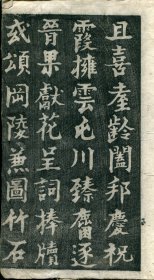 且喜耋齡闔邦慶祝
霞擁雲屯川臻畗逐
晉果獻花呈詞捧牘
或頌岡陵兼圖竹石